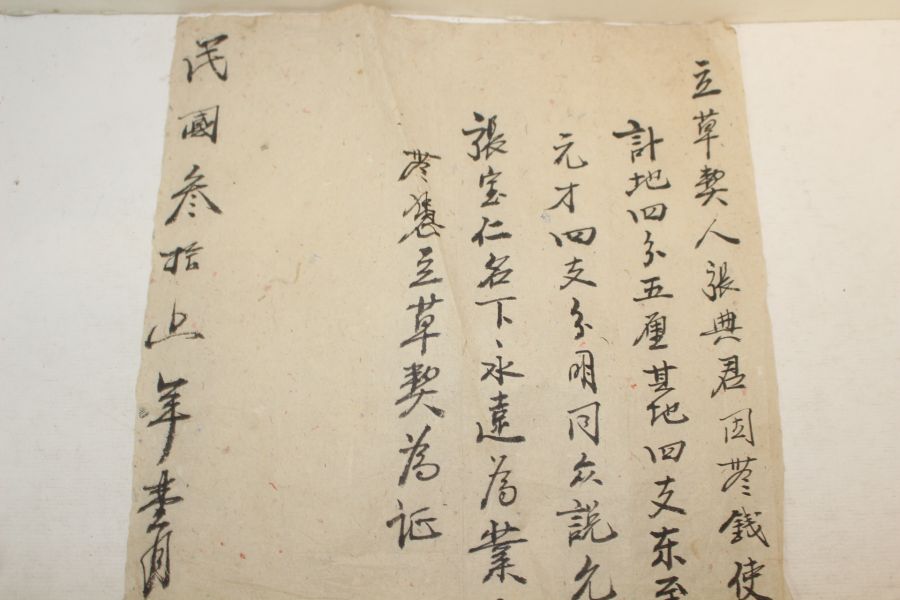 立草契人張典君因無錢使
計地四分五厘其地四支东至
元才四支分明同众説允
張宝仁名下永遠為業
無憑立草契為証
民國叁拾年月